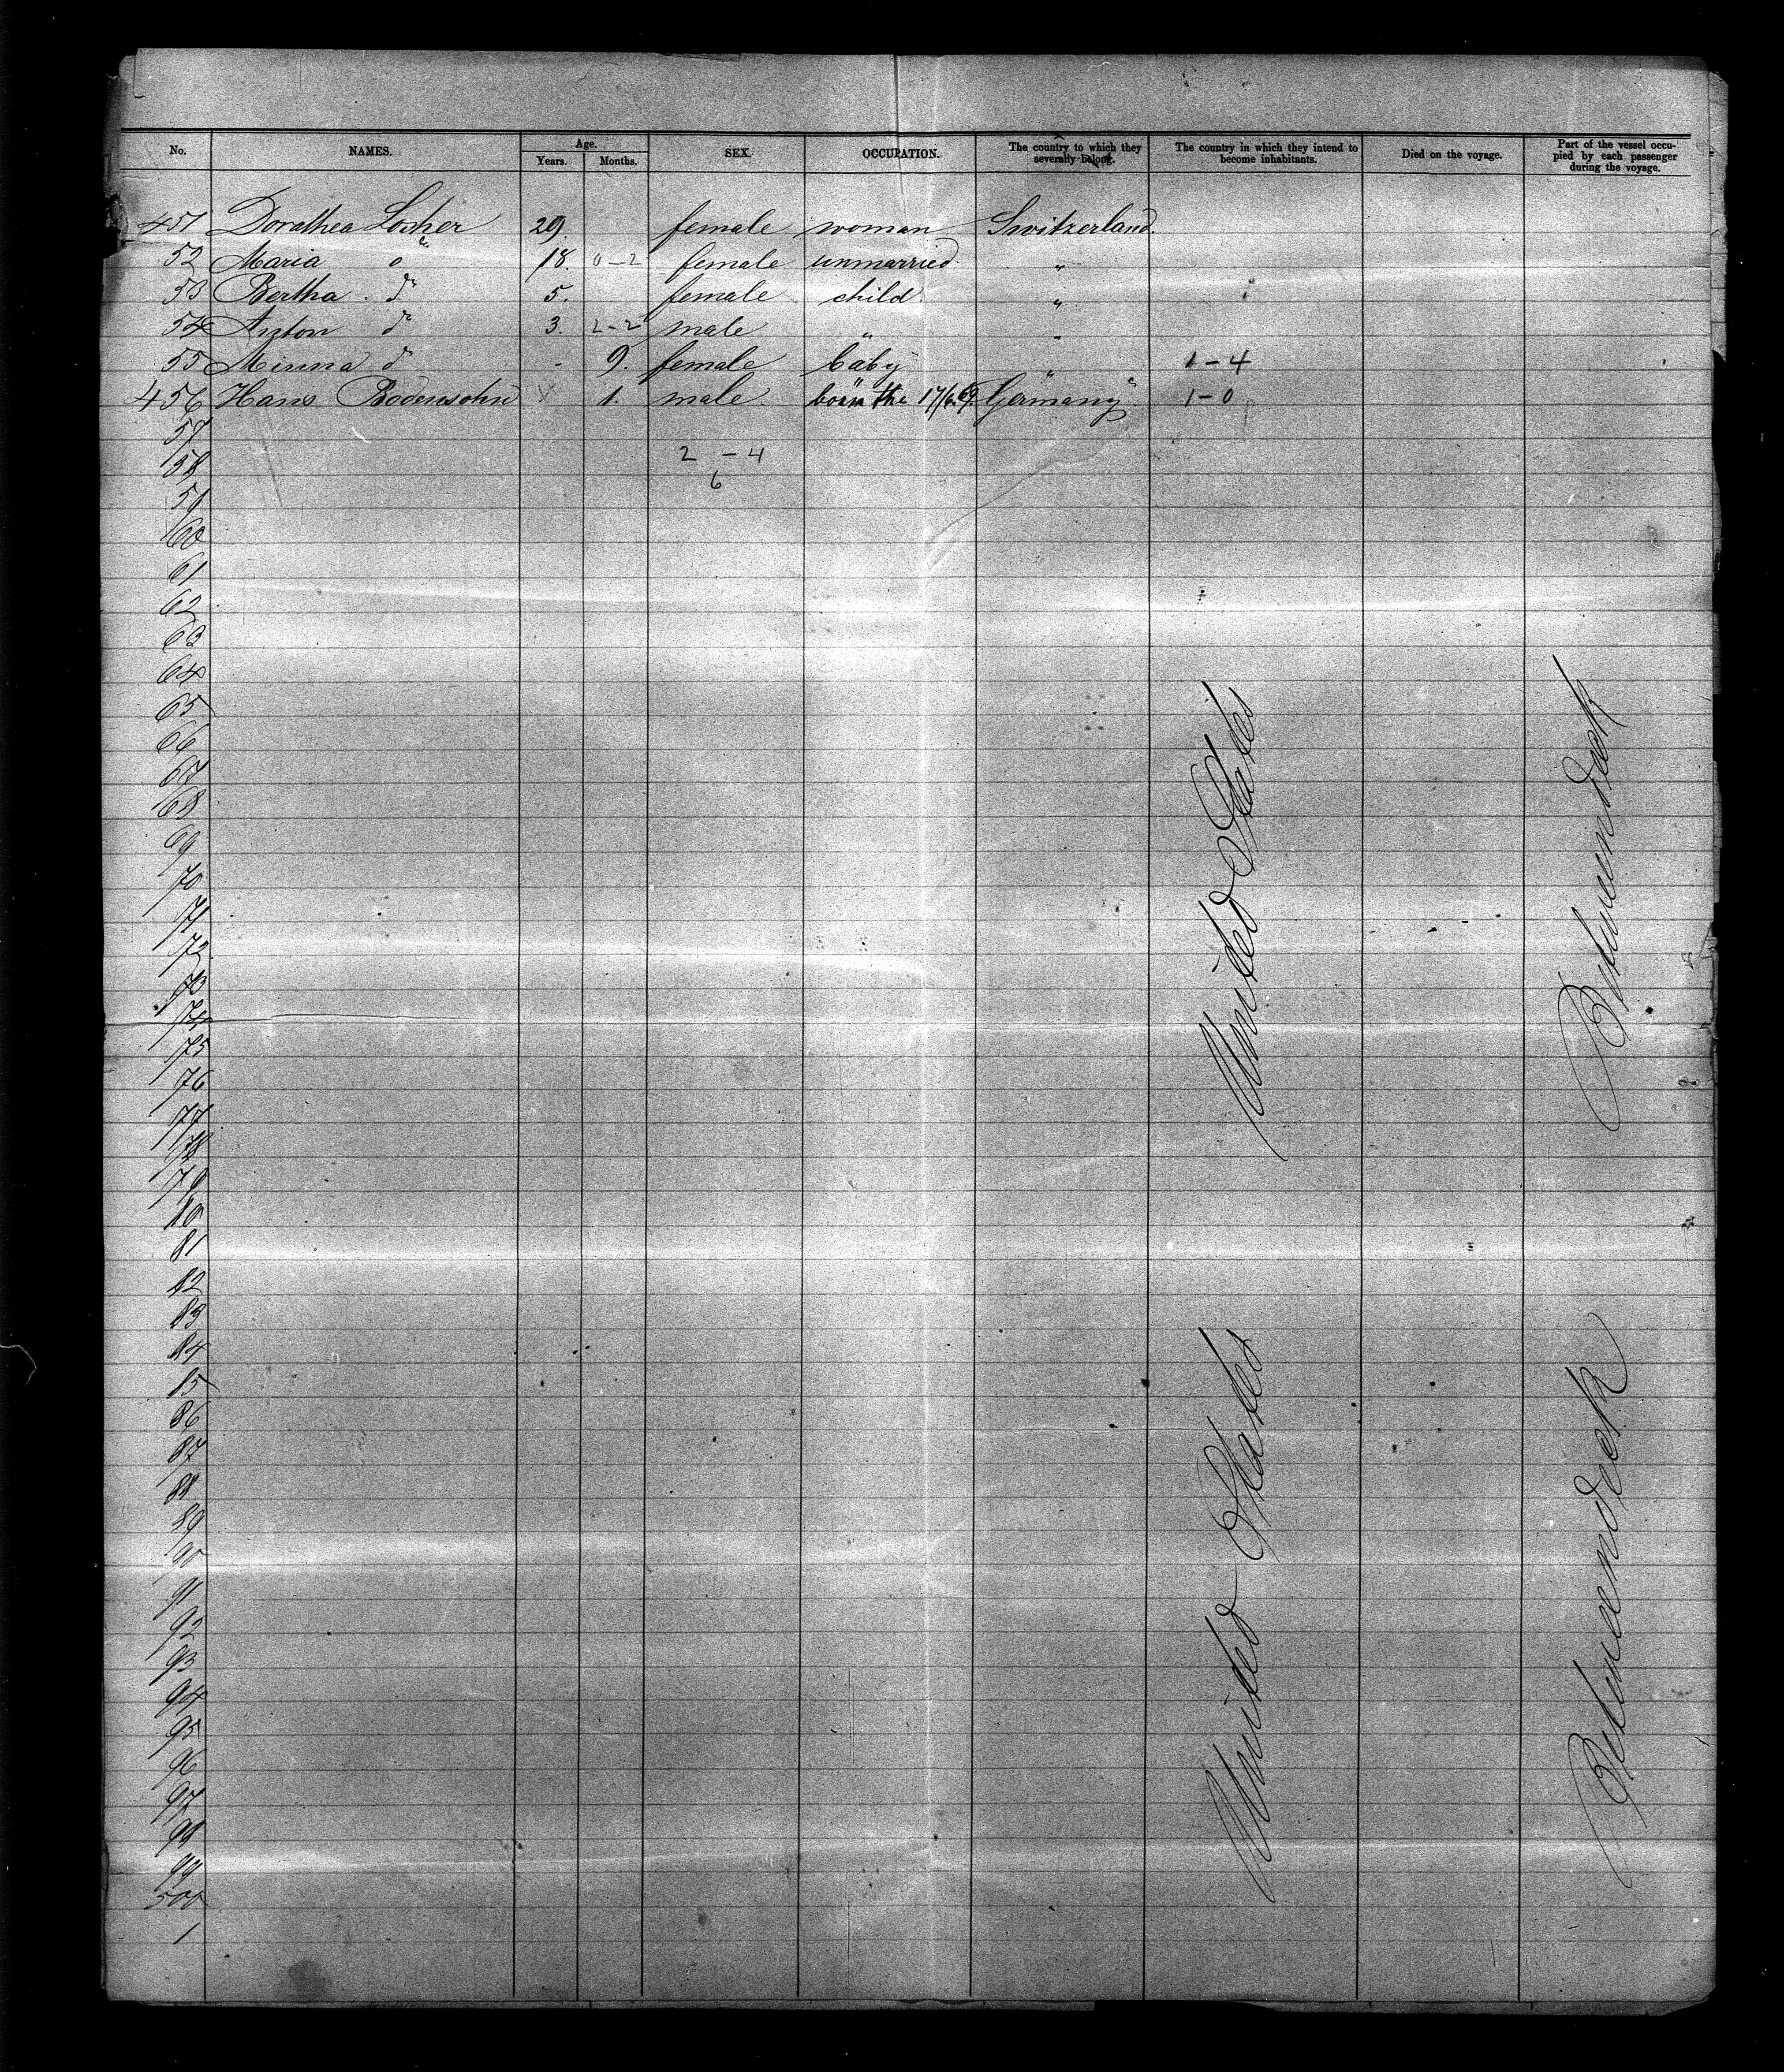 No. NAMES. Age. Years. Months. SEX. OCCUPATION. The country to which they severally belong. The country in which they intend to become inhabitants. Died on the voyage. Part of the vessel occupied by each passenger during the voyage.
451 Dorathea Losher 29. female woman Switzerland.
52 Maria do 18. 0-2 female unmarried. "
53 Bertha. do 5. female child. "
54 Anton do 3. 2-2 male " "
55 Minna do - 9. female baby " " 1-4
456 Hans Bodensohn X 1. male. born the 17/6.69 Germany. 1-0
57
58 2 - 4
6
59
60
61
62
63
64
65
66
67
68
69
70
71
72
73
74
75
76
77
78
79
80
81
82
83
84
85
86
87
88
89
90
91
92
93
94
95
96
97
98
99
500
1
United States
Betweendeck
United States
Betweendeck